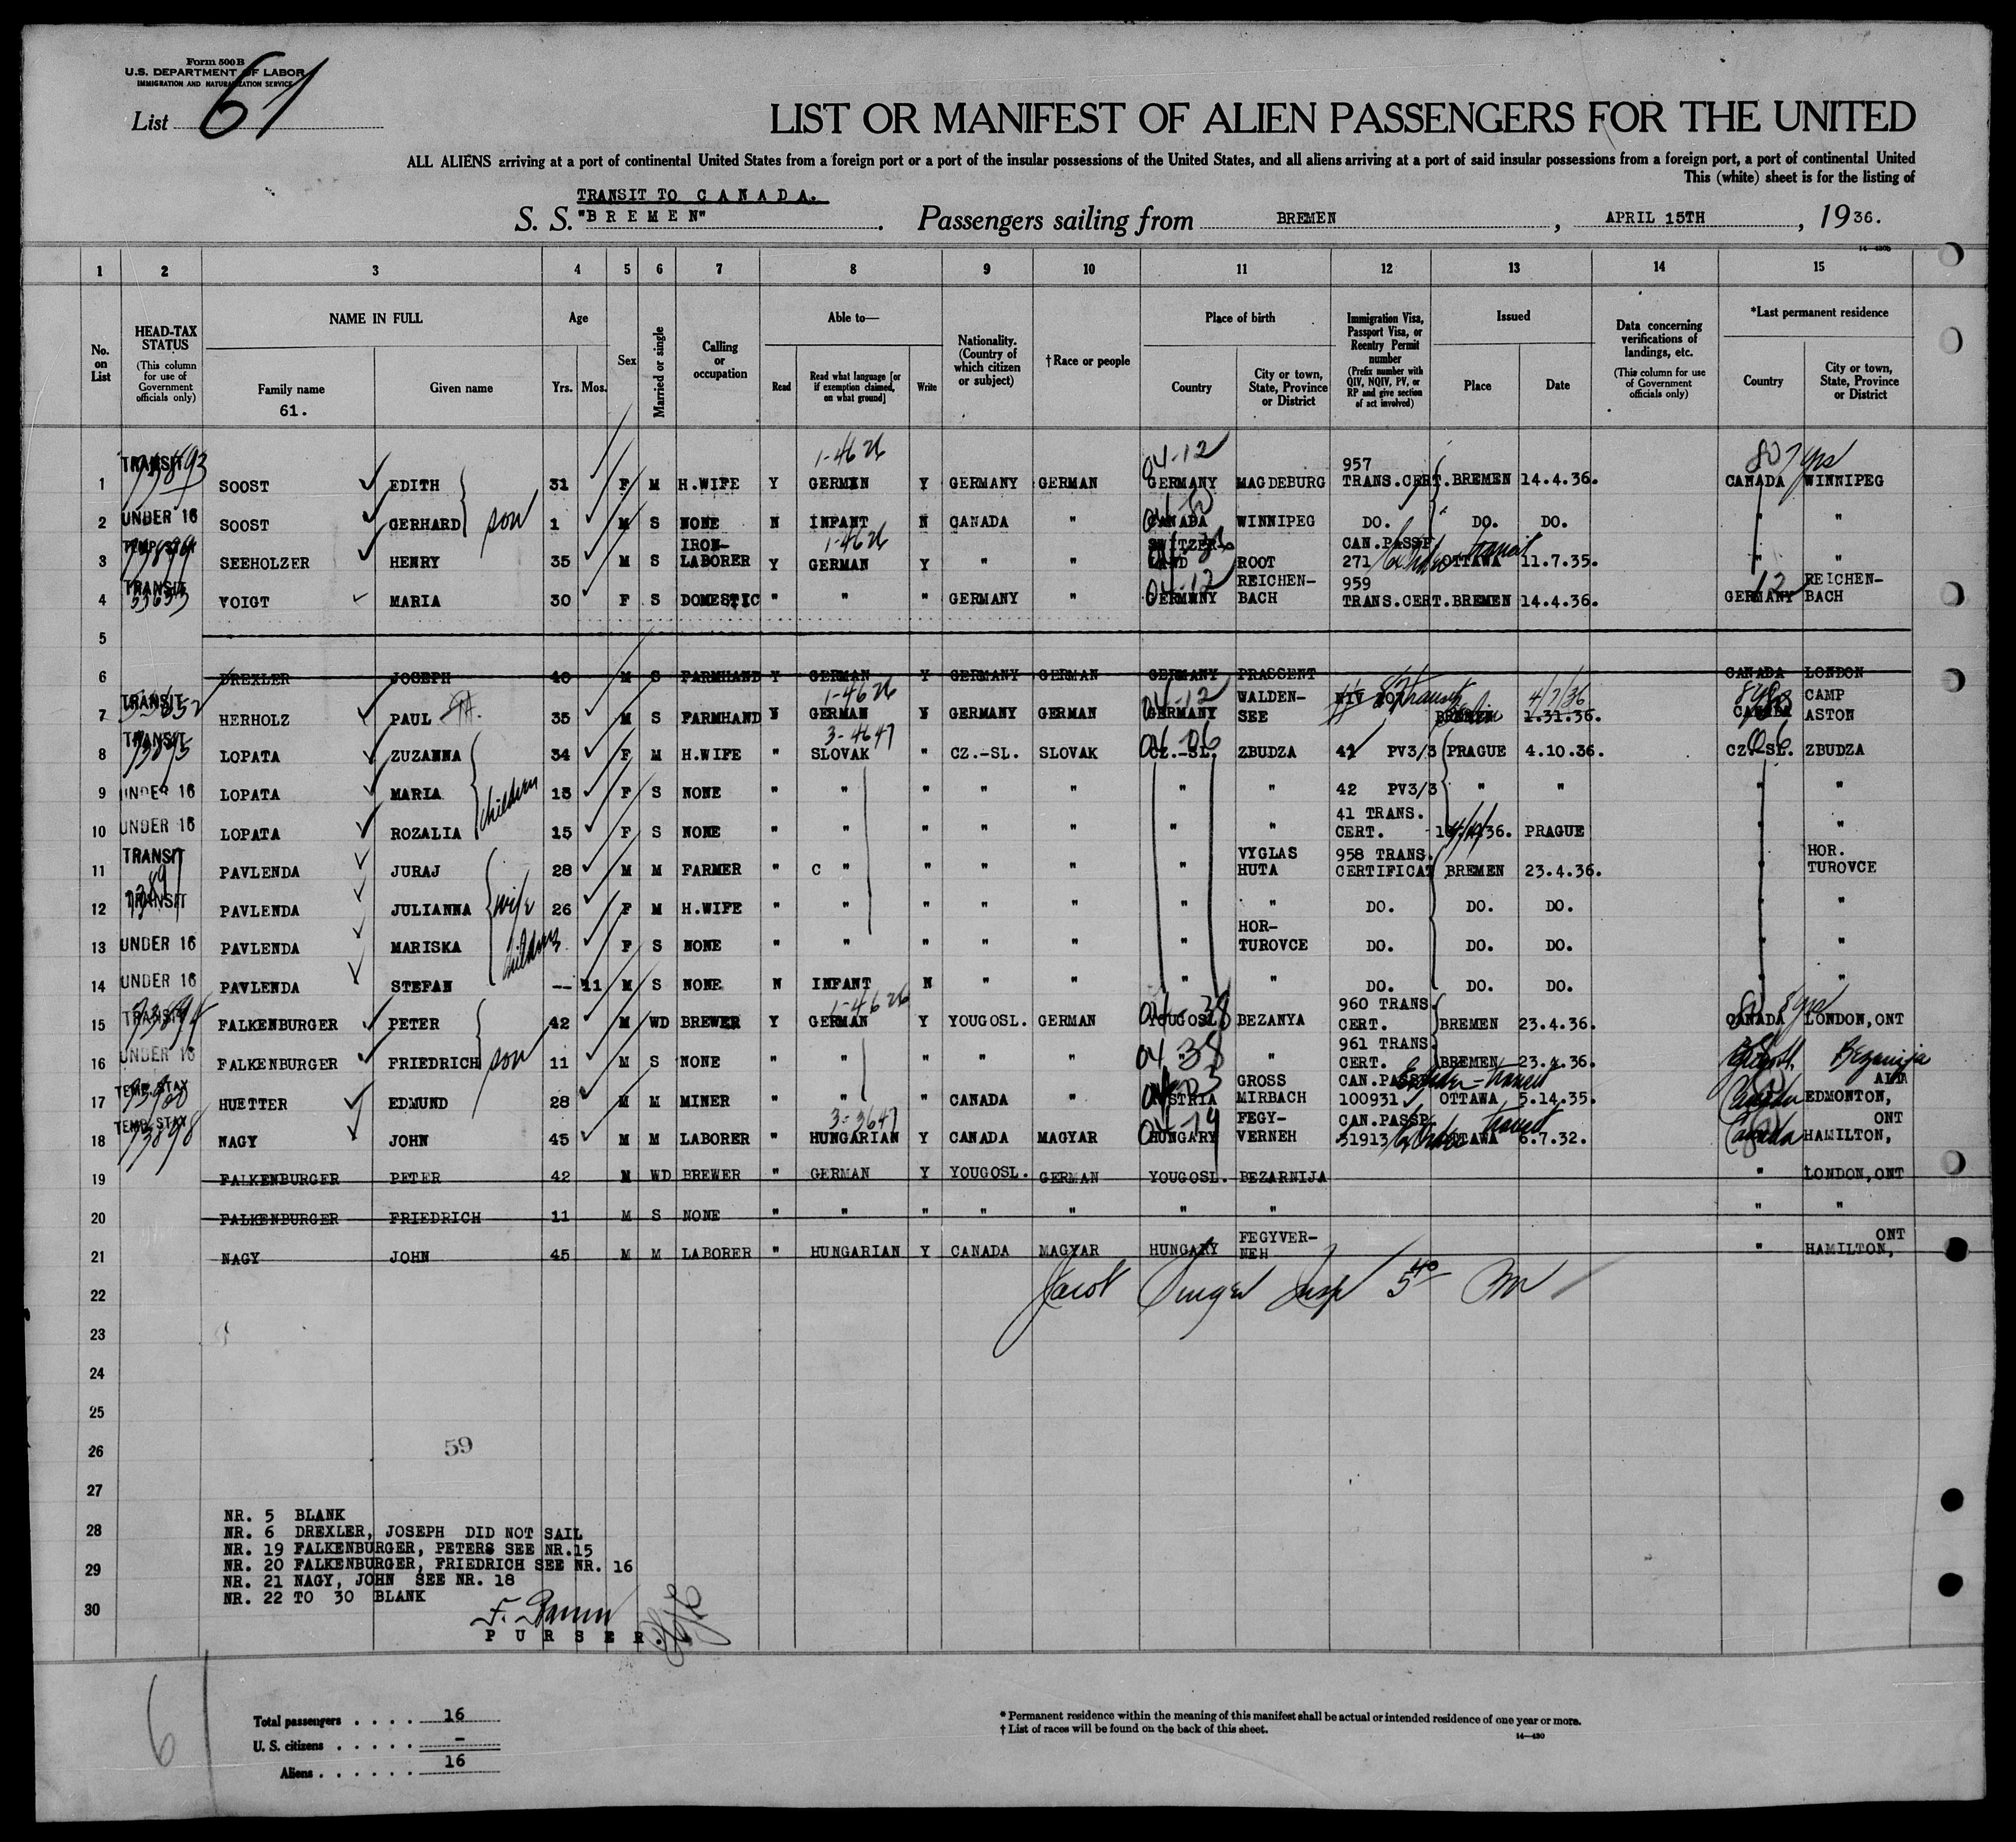 Form 500 B
U.S. DEPARTMENT OF LABOR
IMMIGRATION AND NATURALIZATION SERVICE
List 61
LIST OR MANIFEST OF ALIEN PASSENGERS FOR THE UNITED
ALL ALIENS arriving at a port of continental United States from a foreign port or a port of the insular possessions of the United States, and all aliens arriving at a port of said insular possessions from a foreign port, a port of continental United
This (white) sheet is for the listing of
TRANSIT TO C A N A D A.
S. S. "B R E M E N". Passengers sailing from BREMEN, APRIL 15TH, 1936.
1 2 3 4 5 6 7 8 9 10 11 12 13 14 15
No. on List
HEAD-TAX STATUS (This column for use of Government officials only)
NAME IN FULL Family name Given name
61.
Age Yrs. Mos.
Sex
Married or single
Calling or occupation
Able to— Read Read what language [or if exemption claimed, on what ground] Write
Nationality. (Country of which citizen or subject)
†Race or people
Place of birth Country City or town, State, Province or District
Immigration Visa, Passport Visa, or Reentry Permit number (Prefix number with QIV, NQIV, PV, or RP and give section of act involved)
Issued Place Date
Data concerning verifications of landings, etc. (This column for use of Government officials only)
*Last permanent residence Country City or town, State, Province or District
1 TRANSIT SOOST EDITH 31 F M H.WIFE Y GERMAN 1-4626 Y GERMANY GERMAN 04-12 GERMANY MAGDEBURG 957 TRANS.CERT. BREMEN 14.4.36. CANADA WINNIPEG
2 UNDER 16 SOOST GERHARD son 1 M S NONE N INFANT N CANADA " CANADA WINNIPEG DO. DO. DO. " "
3 SEEHOLZER HENRY 35 M S IRON-LABORER Y GERMAN 1-4626 Y " " SWITZERLAND ROOT CAN.PASSP 271 OTTAWA 11.7.35. " "
4 TRANSIT VOIGT MARIA 30 F S DOMESTIC " " " GERMANY " 04-12 GERMANY REICHENBACH 959 TRANS.CERT. BREMEN 14.4.36. GERMANY 12 REICHENBACH
5
6 DREXLER JOSEPH 40 M S FARMHAND Y GERMAN Y GERMANY GERMAN GERMANY PRASSENT CANADA LONDON
7 TRANSIT HERHOLZ PAUL 35 M S FARMHAND Y GERMAN 1-4626 Y GERMANY GERMAN 04-12 GERMANY WALDENSEE BREMEN 1.31.36. 4/7/36 CANADA CAMP ASTON
8 TRANSIT LOPATA ZUZANNA 34 F M H.WIFE " SLOVAK 3-4647 " CZ.-SL. SLOVAK 04-06 CZ.-SL. ZBUDZA 42 PV3/3 PRAGUE 4.10.36. CZ.-SL. 06 ZBUDZA
9 UNDER 16 LOPATA MARIA children 13 F S NONE " " " " " " " 42 PV3/3 " " " "
10 UNDER 16 LOPATA ROZALIA 15 F S NONE " " " " " " " 41 TRANS. CERT. PRAGUE " "
11 TRANSIT PAVLENDA JURAJ 28 M M FARMER " C " " " " " VYGLAS HUTA 958 TRANS. CERTIFICAT BREMEN 23.4.36. " HOR. TUROVCE
12 TRANSIT PAVLENDA JULIANNA wife 26 F M H.WIFE " " " " " " " DO. DO. DO. " "
13 UNDER 16 PAVLENDA MARISKA children F S NONE " " " " " " HOR-TUROVCE DO. DO. DO. " "
14 UNDER 16 PAVLENDA STEFAN -- 11 M S NONE N INFANT N " " " " DO. DO. DO. " "
15 TRANSIT FALKENBURGER PETER 42 M WD BREWER Y GERMAN 1-4626 Y YOUGOSL. GERMAN 04-38 YOUGOSL. BEZANYA 960 TRANS. CERT. BREMEN 23.4.36. CANADA LONDON,ONT
16 UNDER 16 FALKENBURGER FRIEDRICH son 11 M S NONE " " " " " 04 38 " " 961 TRANS. CERT. BREMEN 23.4.36. Bezanija
17 TEMP.STAY HUETTER EDMUND 28 M M MINER " " " CANADA " AUSTRIA GROSS MIRBACH CAN.PASSP. 100931 OTTAWA 5.14.35. Canada EDMONTON, ALTA
18 TEMP.STAY 73898 NAGY JOHN 45 M M LABORER " HUNGARIAN 3-3647 Y CANADA MAGYAR 04-19 HUNGARY FEGYVERNEH CAN.PASSP. 51913 transit OTTAWA 6.7.32. Canada HAMILTON, ONT
19 FALKENBURGER PETER 42 M WD BREWER " GERMAN Y YOUGOSL. GERMAN YOUGOSL. BEZARNIJA " LONDON,ONT
20 FALKENBURGER FRIEDRICH 11 M S NONE " " " " " " " " "
21 NAGY JOHN 45 M M LABORER " HUNGARIAN Y CANADA MAGYAR HUNGARY FEGYVERNEH " HAMILTON, ONT
22 Jacob Insp 5 40
23
24
25
26 59
27
NR. 5 BLANK
28 NR. 6 DREXLER, JOSEPH DID NOT SAIL
NR. 19 FALKENBURGER, PETERS SEE NR.15
29 NR. 20 FALKENBURGER, FRIEDRICH SEE NR. 16
NR. 21 NAGY, JOHN SEE NR. 18
NR. 22 TO 30 BLANK
30
P U R S E R.
61
Total passengers . . . . 16
U. S. citizens . . . . . -
Aliens . . . . . . 16
* Permanent residence within the meaning of this manifest shall be actual or intended residence of one year or more.
† List of races will be found on the back of this sheet.
14—430